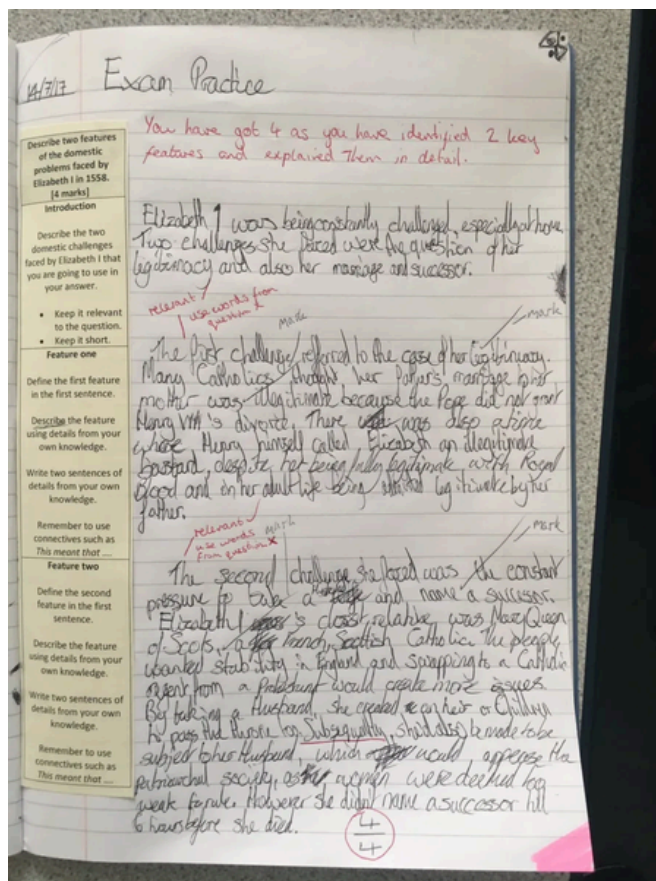 14/7/17
Exam Practice
You have got 4 as you have identified 2 key
features and explained them in detail.
Describe two features
of the domestic
problems faced by
Elizabeth I in 1558.
[4 marks]
Introduction
Describe the two
domestic challenges
faced by Elizabeth I that
you are going to use in
your answer.
• Keep it relevant
to the question.
• Keep it short.
Feature one
Define the first feature
in the first sentence.
Describe the feature
using details from your
own knowledge.
Write two sentences of
details from your own
knowledge.
Remember to use
connectives such as
This meant that ....
Feature two
Define the second
feature in the first
sentence.
Describe the feature
using details from your
own knowledge.
Write two sentences of
details from your own
knowledge.
Remember to use
connectives such as
This meant that ....
Elizabeth 1 was being constantly challenged, especially at home.
Two challenges she faced were the question of her
legitimacy and also her marriage and successor.
relevant
use words from
question
mark
mark
The first challenge referred to the case of her legitimacy.
Many Catholics thought her marriage to her
mother was illegitimate because the Pope did not grant
Henry VIII's divorce. There was also a
where Henry himself called Elizabeth an illegitimate
bastard, despite her being fully legitimate with Royal
blood and in her adult life being legitimate by her
father.
relevant
use words
from question
mark
mark
The second challenge she faced was the constant
pressure to take a and name a sucessor.
Elizabeth 1's closest relative was Mary Queen
of Scots, a French, Scottish Catholic. The people
wanted stability in England and swapping to a Catholic
regent from a Protestant would create more issues.
By taking a Husband, she created an heir or Children
to pass the throne to. Subsequently, she'd also be made to be
subject to her Husband, which would appease the
patriarchal society, as women were deemed too
weak to rule. However she didn't name a successor till
6 hours before she died.
4
4